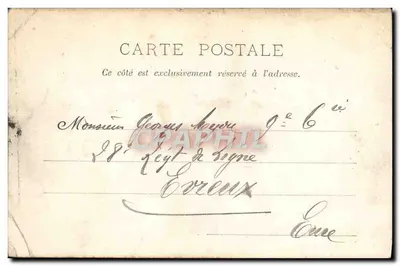 CARTE POSTALE
Ce côté est exclusivement réservé à l'adresse.
Monsieur Georges 9e Cie
28e Regt de Ligne
Evreux
Eure